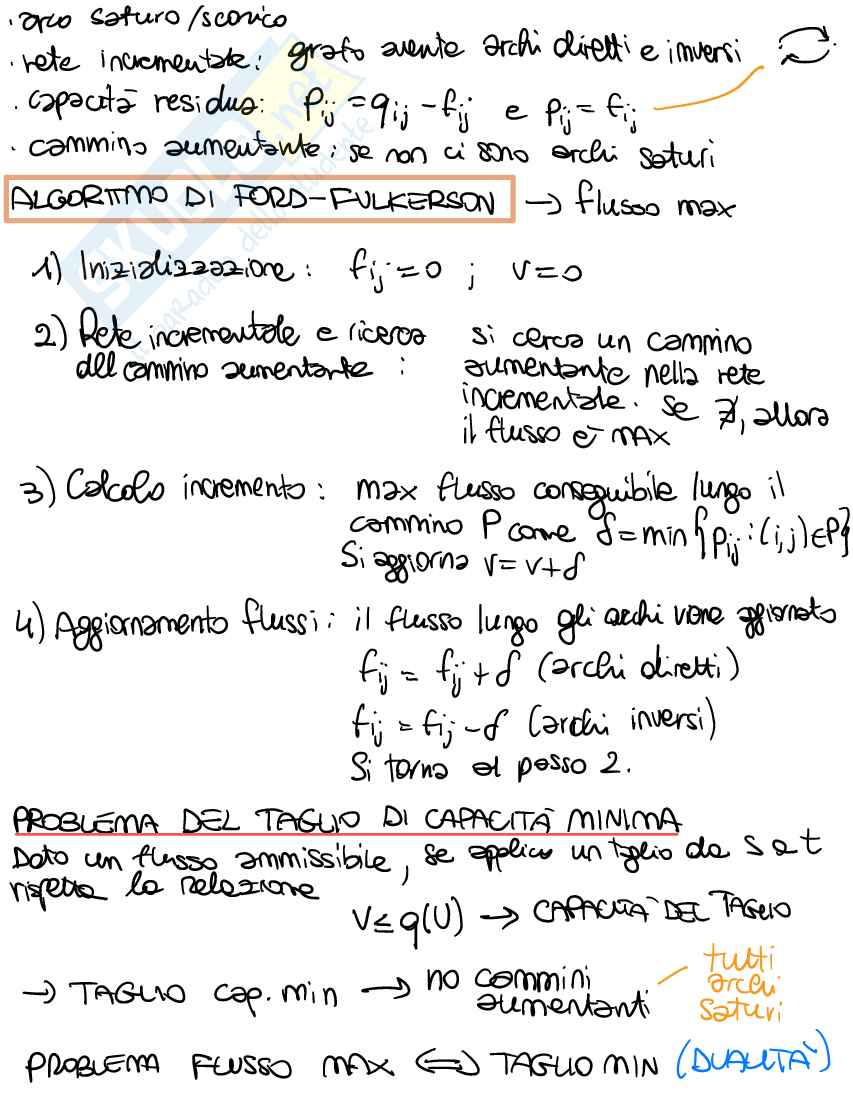 · arco saturo/scarico
· rete incrementale: grafo avente archi diretti e inversi
· capacità residua: ρij = qij - fij e ρij = fij
· cammino aumentante: se non ci sono archi saturi
ALGORITMO DI FORD-FULKERSON → flusso max
1) Inizializzazione: fij = 0 ; v = 0
2) Rete incrementale e ricerca del cammino aumentante: si cerca un cammino
aumentante nella rete
incrementale. Se ∄, allora
il flusso è MAX
3) Calcolo incremento: max flusso conseguibile lungo il
cammino P come δ = min{ρij : (i,j) ∈ P}
Si aggiorna v = v + δ
4) Aggiornamento flussi: il flusso lungo gli archi viene aggiornato
fij = fij + δ (archi diretti)
fij = fij - δ (archi inversi)
Si torna al passo 2.
PROBLEMA DEL TAGLIO DI CAPACITÀ MINIMA
Dato un flusso ammissibile, se applico un taglio da s a t
rispetta la relazione
V ≤ q(U) → CAPACITÀ DEL TAGLIO
→ TAGLIO cap. min → no cammini
aumentanti
tutti
archi
saturi
PROBLEMA FLUSSO MAX ⟺ TAGLIO MIN (DUALITÀ)
SKUOLA.net